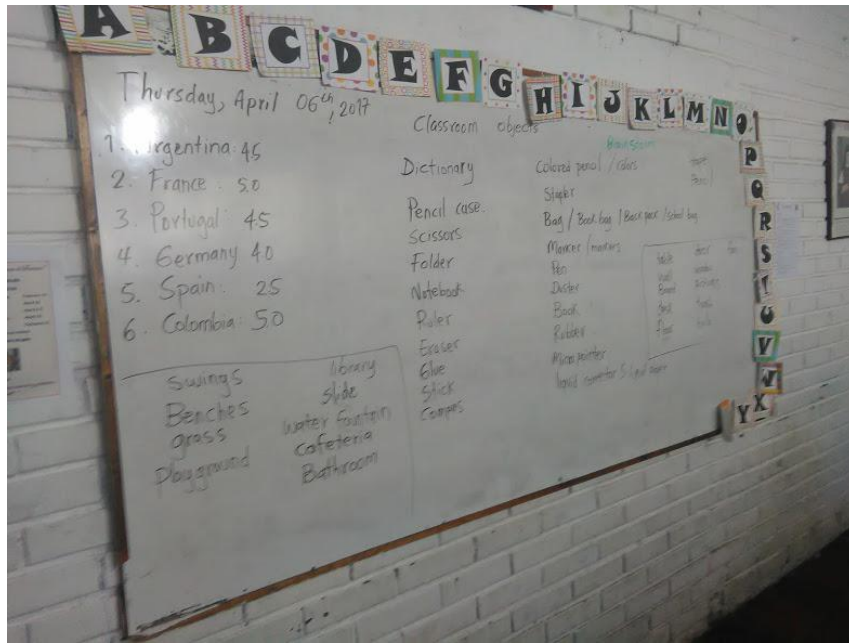 A B C D E F G H I J K L M N O P Q R S T U V W X Y
Thursday, April 06th, 2017
1. Argentina: 4.5
2. France: 5.0
3. Portugal: 4.5
4. Germany 4.0
5. Spain: 2.5
6. Colombia: 5.0
swings
Benches
grass
Playground
library
slide
water fountain
cafeteria
Bathroom
Classroom objects
Dictionary
Pencil case.
Scissors
Folder
Notebook
Ruler
Eraser
Glue
Stick
Compas
Colored pencil / colors
Stapler
Bag / Book bag / Back pack / school bag
Marker / markers
Pen
Duster
Book
Rubber
Micropointer
Pencil
table
desk
fan
wall
Board
floor